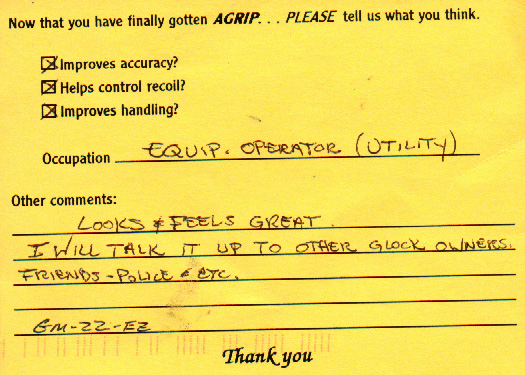 Now that you have finally gotten AGRIP. . . PLEASE tell us what you think.
Improves accuracy?
Helps control recoil?
Improves handling?
Occupation EQUIP. OPERATOR (UTILITY)
Other comments:
LOOKS & FEELS GREAT.
I WILL TALK IT UP TO OTHER GLOCK OWNERS.
FRIENDS - POLICE & ETC.
GM-22-EZ
Thank you